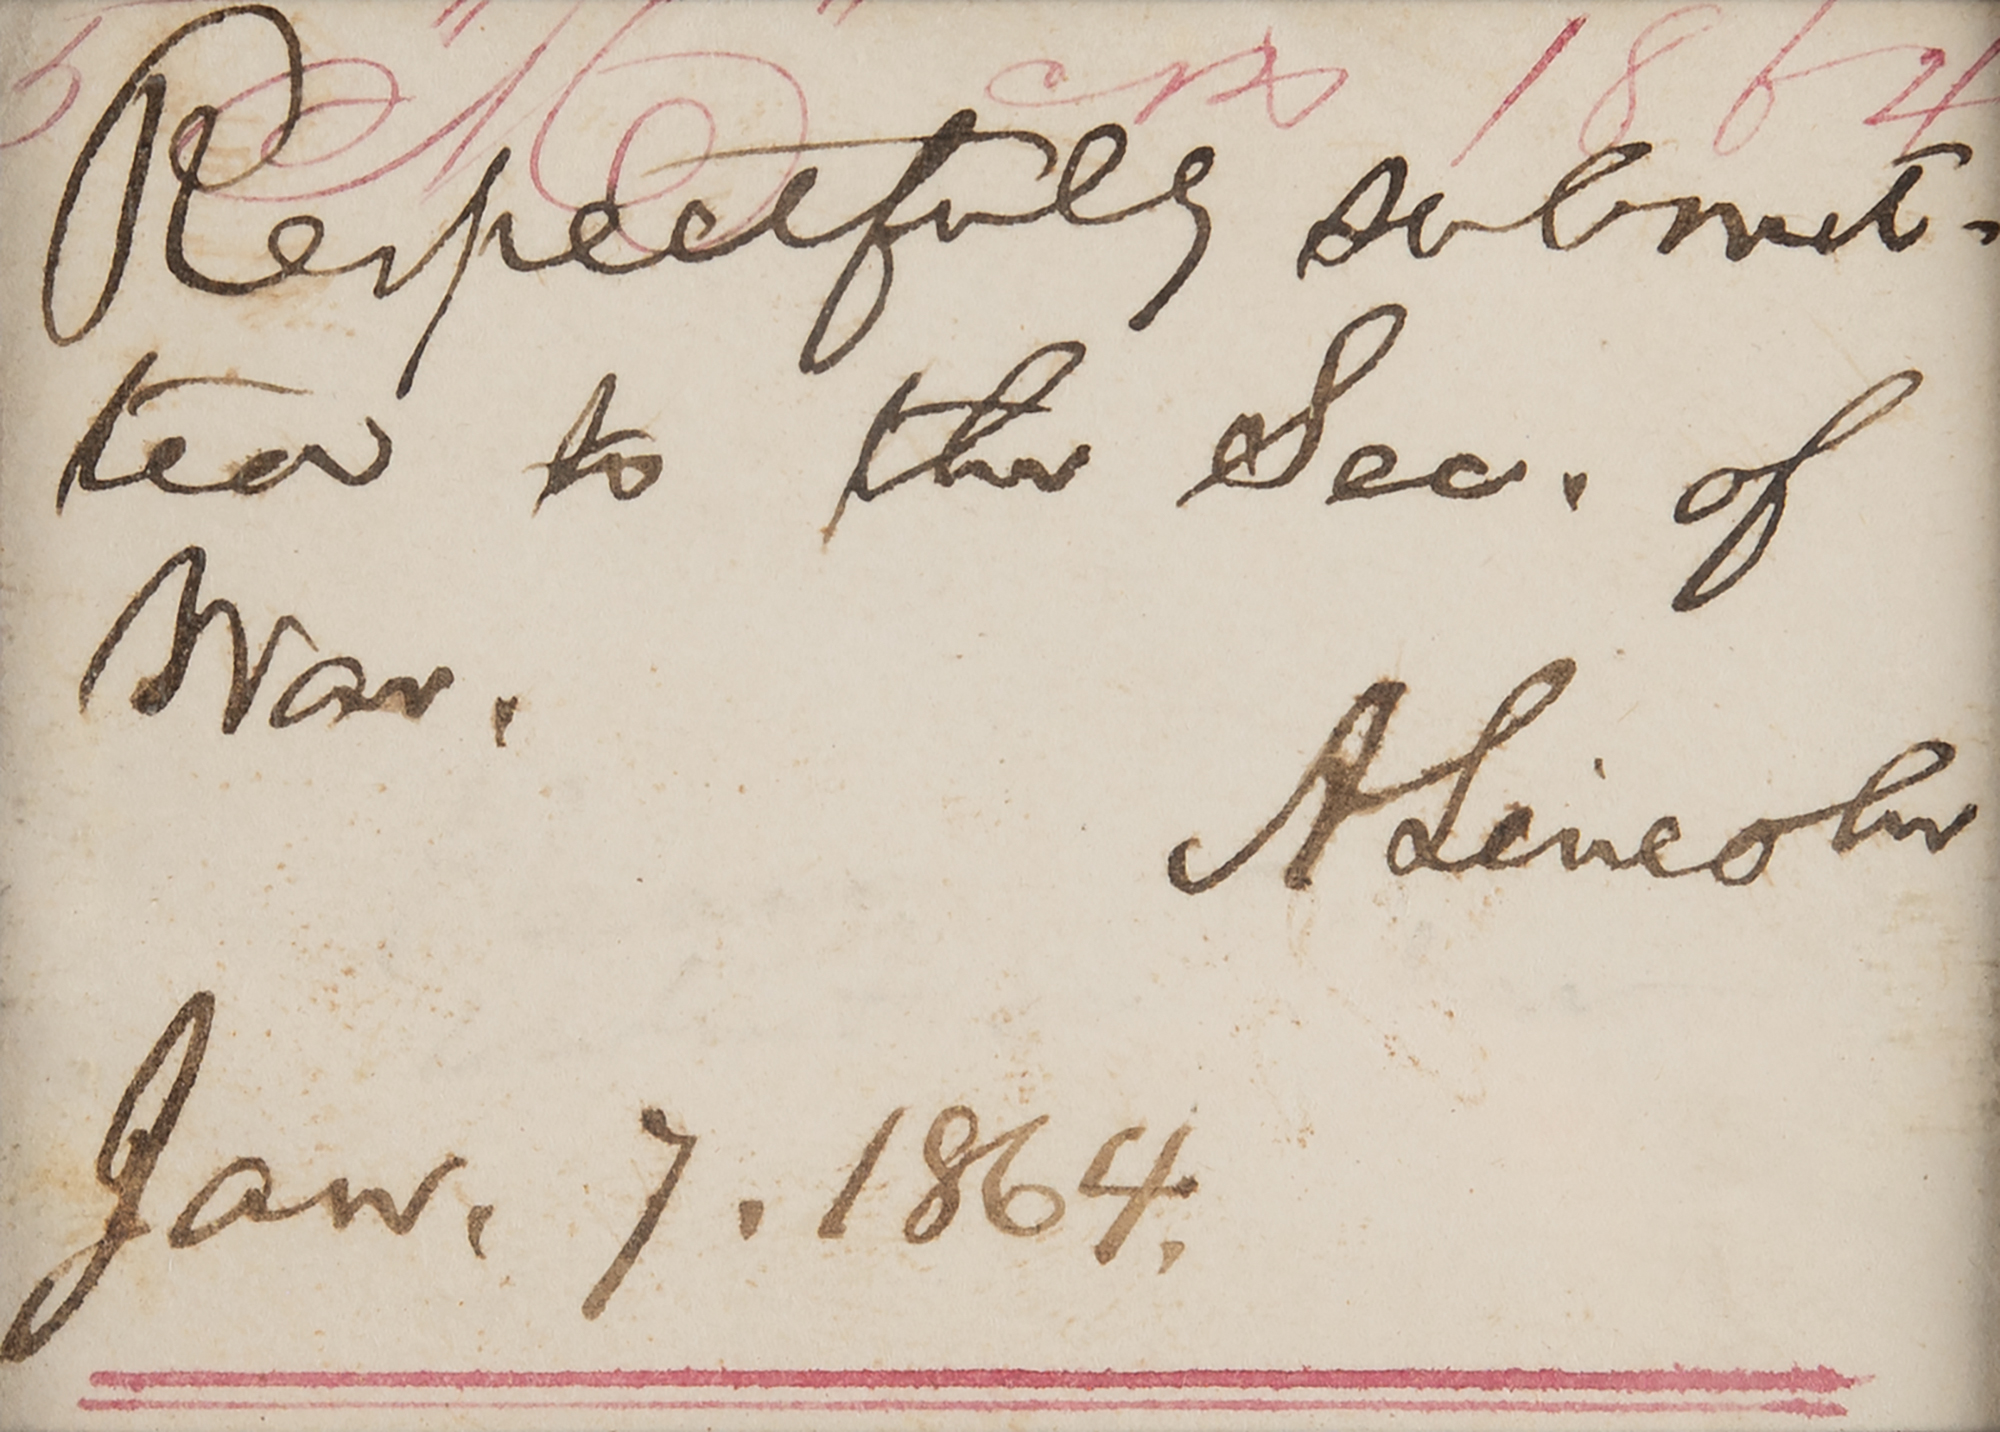 1864
Respectfully submit-
ted to the Sec. of
War.
A Lincoln
Jan. 7. 1864.